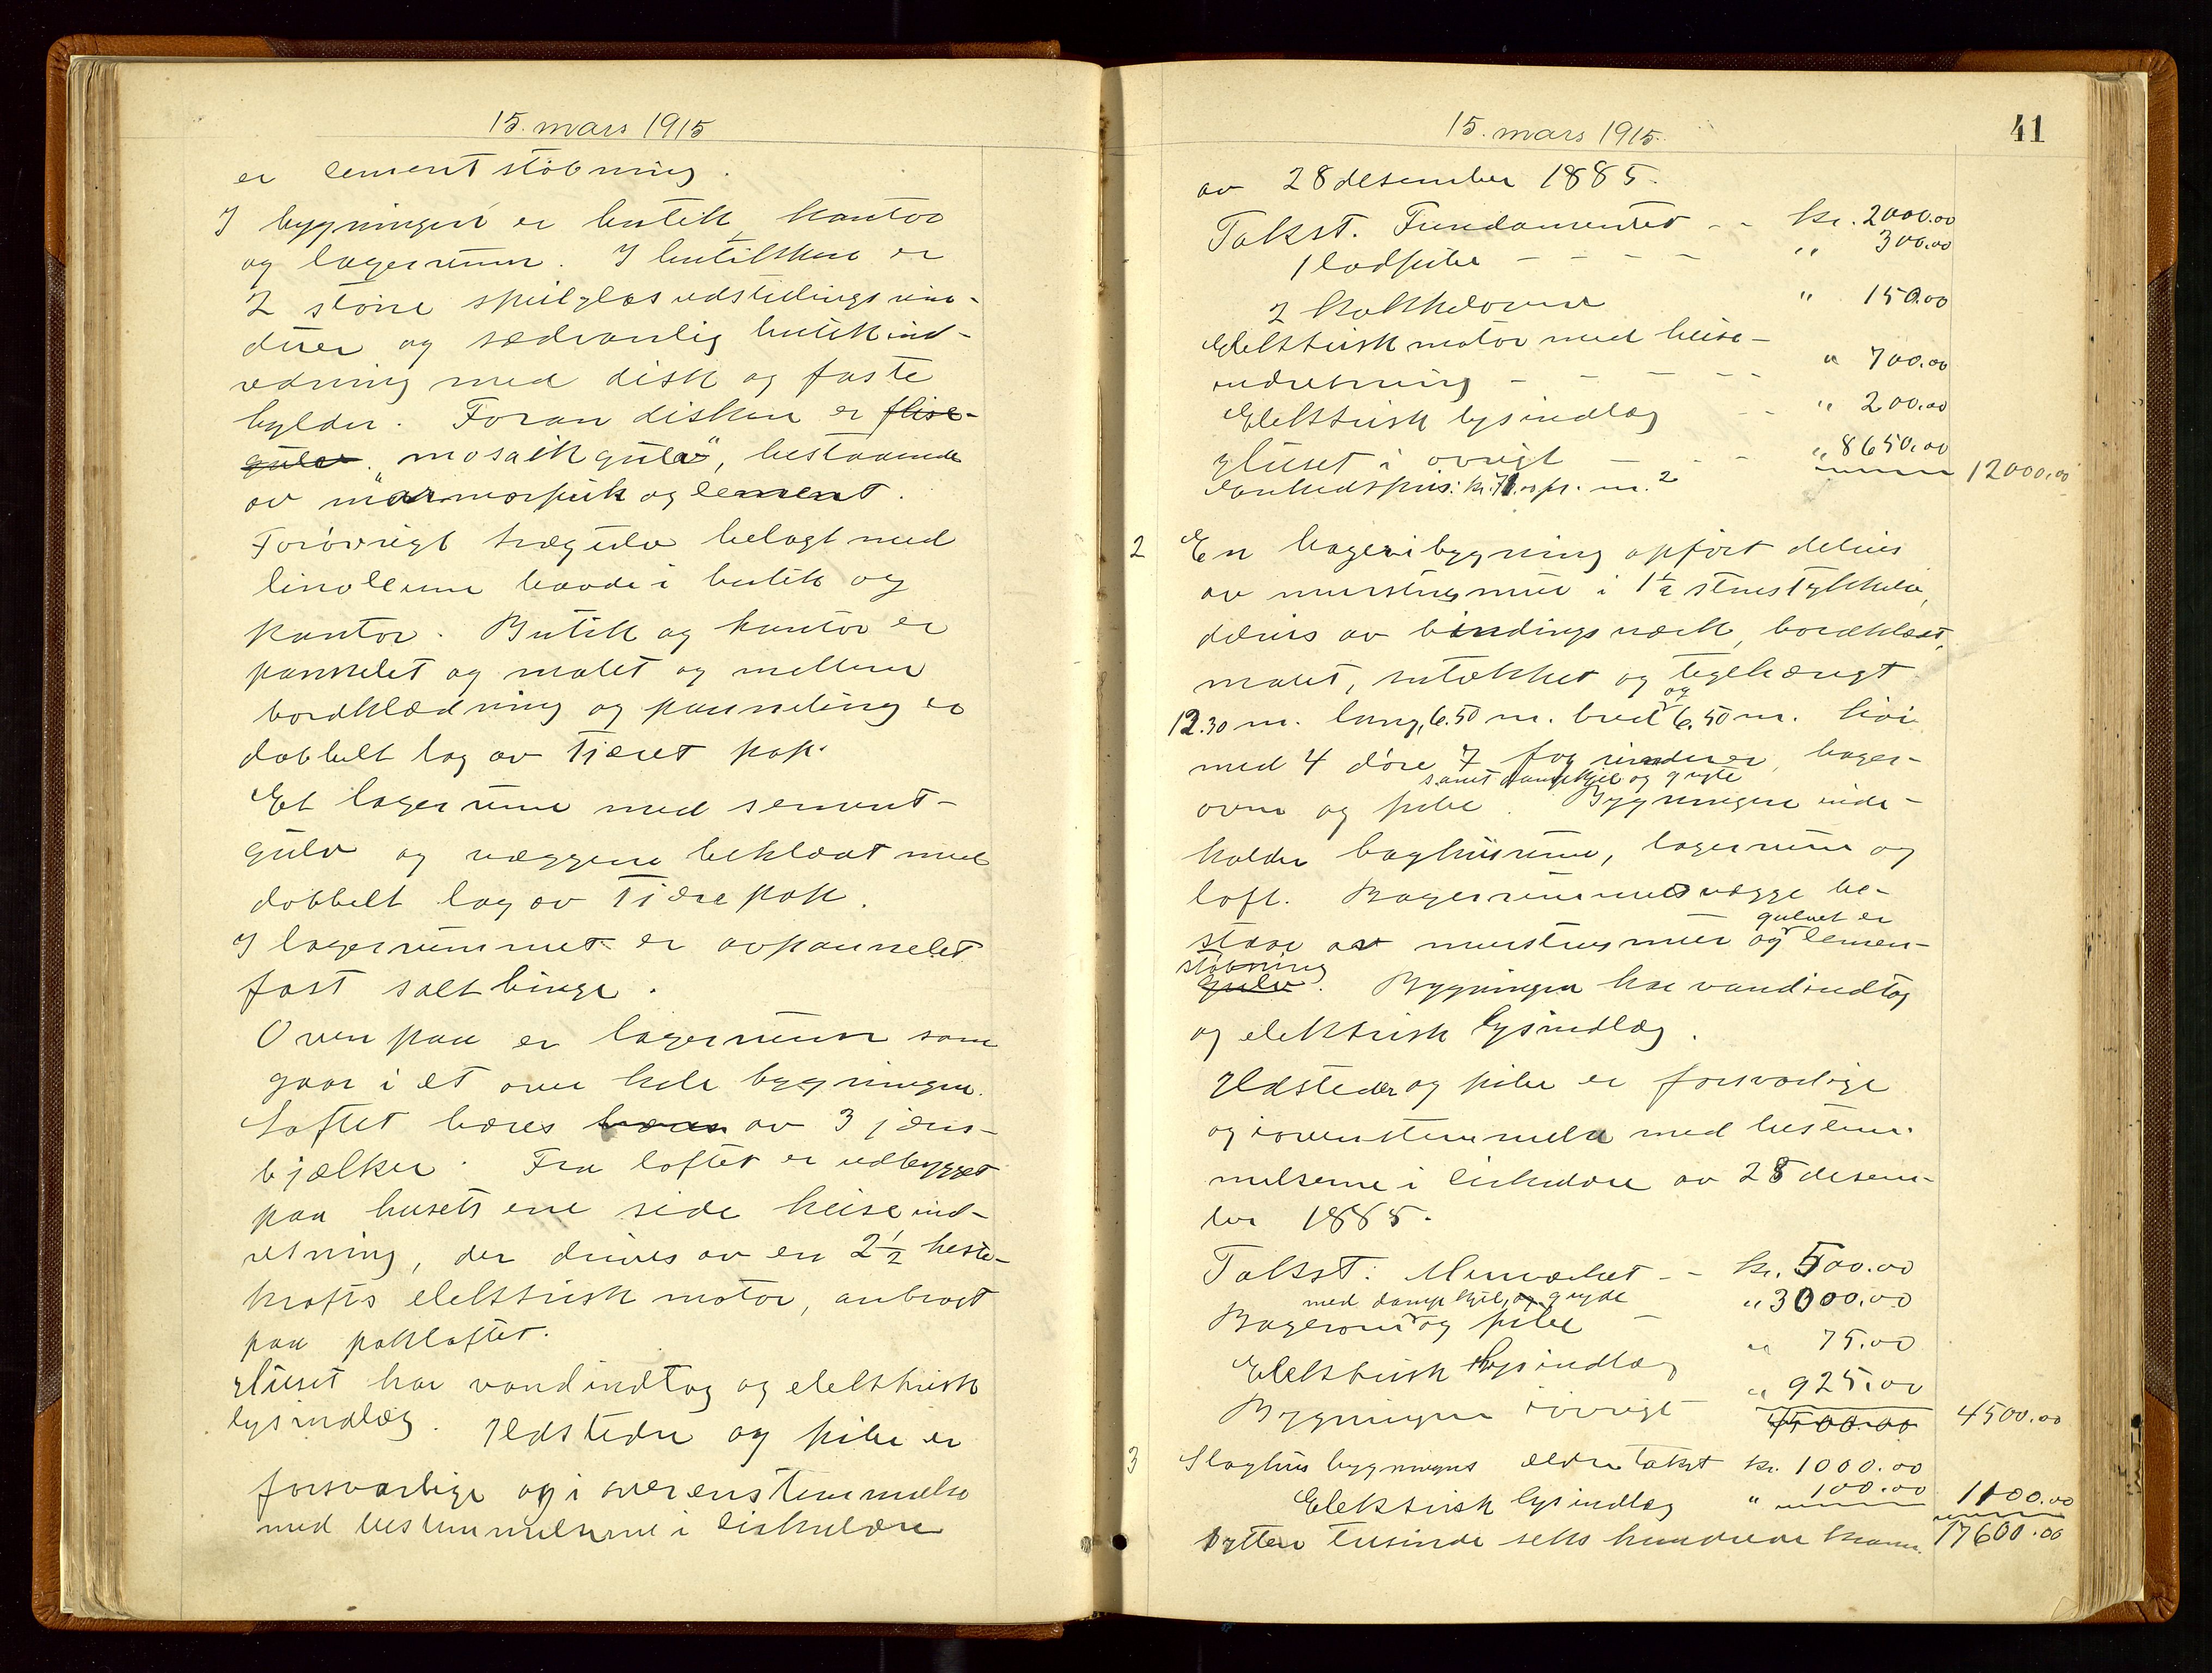 15. mars 1915
er cementstöbning.
I bygningen er butik, kontor
og lagerrum. I butikken er
2 större speilglasudstillingsvin-
duer og sedvanlig butikind-
redning med disk og faste
hylder. Foran disken er flise-
gulv. "mosaikgulv", bestaaende
av marmorpuk og cement.
Forövrigt trægulv belagt med
linoleum baade i butik og
kontor. Butik og kontor er
pannelet og malet og mellem
bordklædning og panneling er
dobbelt lag av tjæret pap.
Et lagerrum med sement-
gulv og væggene beklædt med
dobbelt lag av tjærepap.
I lagerrummet er avpannelet
fast saltbinge.
Ovenpaa er lagerrum som
gaar i et over hele bygningen.
Loftet bæres bæres av 3 jern-
bjælker. Fra loftet er udbygget
paa husets ene side heiseind-
retning, der drives av en 2½ heste-
krafts elektrisk motor, anbragt
paa pakloftet.
Huset har vandindtag og elektrisk
lysindlæg. Ildsteder og pibe er
forsvarlige og i overensstemmelse
med bestemmelserne i cirkulære
15. mars 1915.
41
av 28 desember 1885.
Takst. Fundamentet - - kr. 2000.00
1 ladpibe - - - - " 300.00
2 kakkelovne " 150.00
Elektrisk motor med heise-
indretning - - - - - " 700.00
Elektrisk lysindlæg - - " 200.00
Huset i övrigt - - - " 8650.00
Enhedspris: kr. 71.00 pr. m.² 12000.00
2 En bageribygning opfört delvis
av murstensmur i 1½ stens tykkelse,
delvis av bindingsverk, bordklædt,
malet, sutækket og teglhængt
og
12.30 m. lang, 6.50 m. bred 6.50 m. höi
med 4 döre 7 fag vinduer, bager-
samt dampkjel og gryte
ovn og pibe. Bygningen inde-
holder baghusrum, lagerrum og
loft. Bagerrummets vægge be-
gulvet er
staar av murstensmur og cemen-
stöbning
gulv. Bygningen har vandindtag
og elektrisk lysindlæg.
Ildsteder og pibe er forsvarlige
og i overenstemmelse med bestem-
melserne i cirkulære av 28 desem-
ber 1885.
Takst: Murverket - - kr. 500.00
med dampkjel, og gryde
Bagerovn og pibe - " 3000.00
Elektrisk lysindlæg " 75.00
Bygningen iövrigt " 925.00
4500.00 4500.00
3 Slaghusbygningens ældre takst kr. 1000.00
Elektrisk lysindlæg " 100.00 1100.00
Sytten tusinde seks hundrede kroner. 17600.00